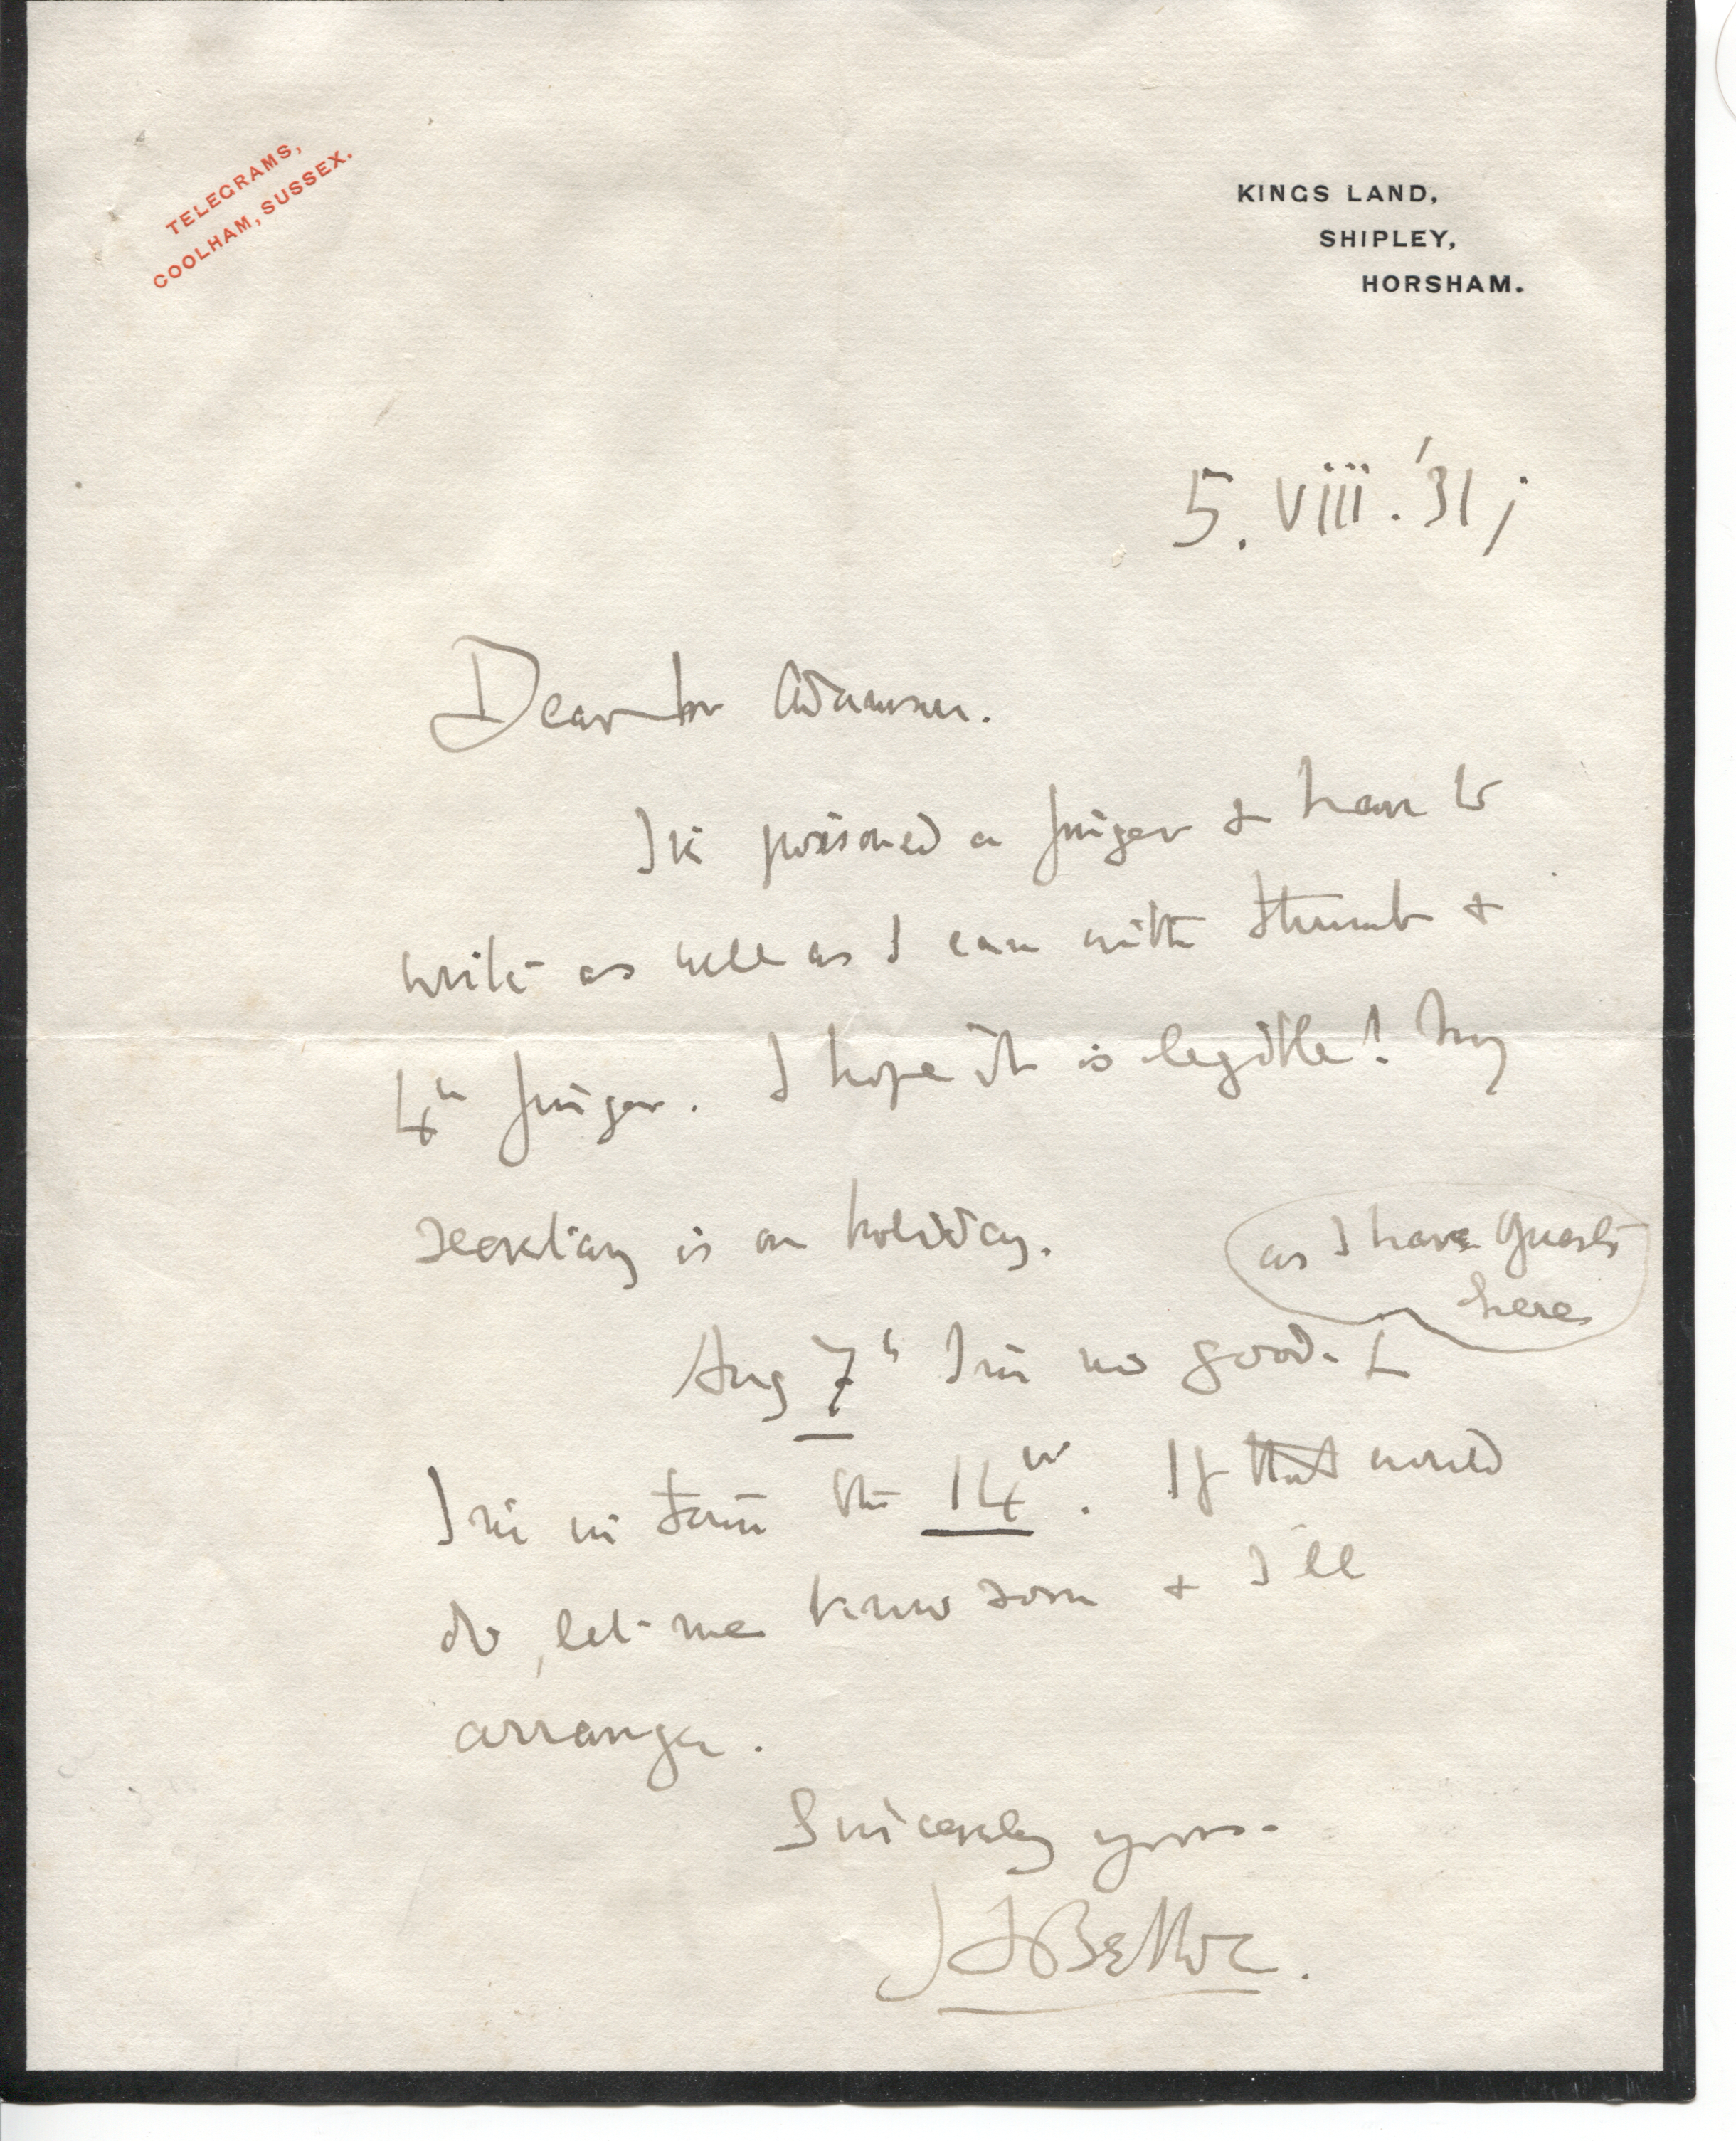 TELEGRAMS,
COOLHAM, SUSSEX.
KINGS LAND,
SHIPLEY,
HORSHAM.
5. viii. '31;
Dear Mr Adamson.
I've poisoned a finger & have to
write as well as I can with thumb &
4th finger. I hope it is legible! My
secretary is on holiday.
as I have guests
here
Aug 7th I'm no good.
I'm in town the 14th. If that would
do, let me know soon & I'll
arrange.
Sincerely yours.
H Belloc.